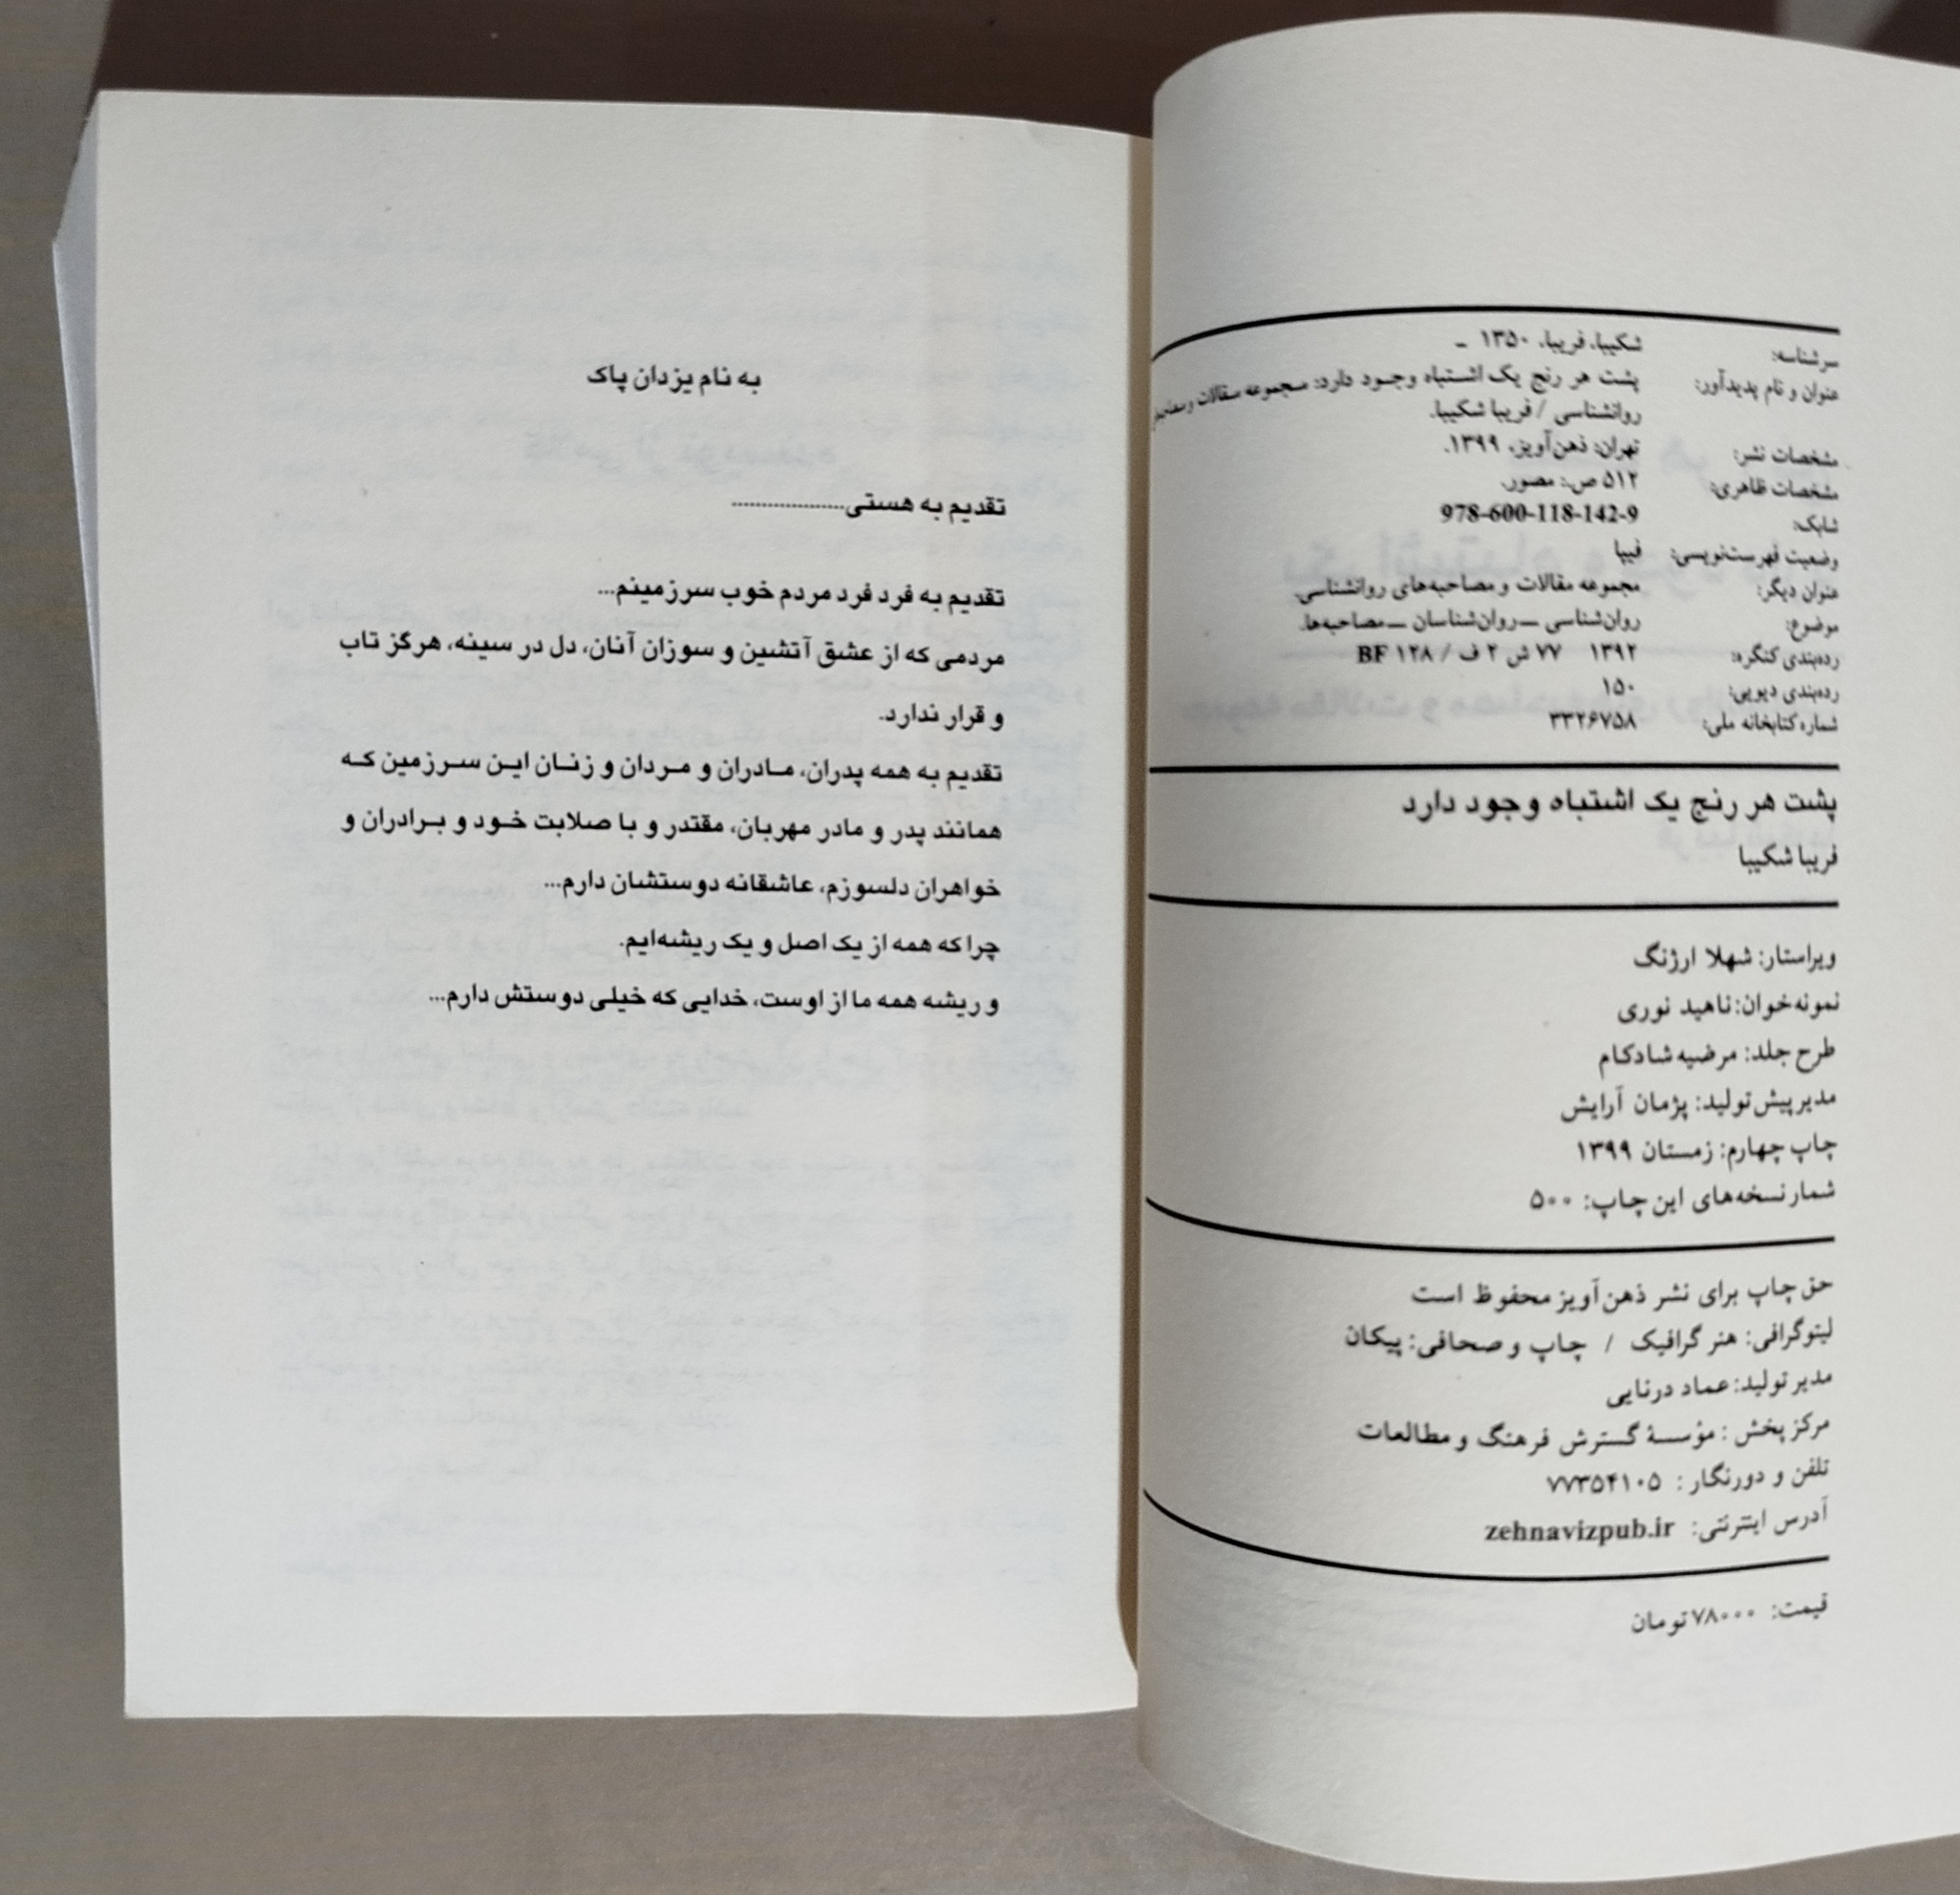 سرشناسه: شکیبا، فریبا، ۱۳۵۰ ـ
عنوان و نام پدیدآور: پشت هر رنج یک اشتباه وجود دارد: مجموعه مقالات و مصاحبه‌های
روانشناسی / فریبا شکیبا.
مشخصات نشر: تهران: ذهن‌آویز، ۱۳۹۹.
مشخصات ظاهری: ۵۱۲ ص.: مصور.
شابک: 978-600-118-142-9
وضعیت فهرست‌نویسی: فیپا
عنوان دیگر: مجموعه مقالات و مصاحبه‌های روانشناسی.
موضوع: روان‌شناسی ـــ روان‌شناسان ـــ مصاحبه‌ها.
رده‌بندی کنگره: ۱۳۹۲ ۷۷ ش ۲ ف / BF ۱۲۸
رده‌بندی دیویی: ۱۵۰
شماره کتابخانه ملی: ۳۳۲۶۷۵۸
پشت هر رنج یک اشتباه وجود دارد
فریبا شکیبا
ویراستار: شهلا ارژنگ
نمونه‌خوان: ناهید نوری
طرح جلد: مرضیه شادکام
مدیر پیش‌تولید: پژمان آرایش
چاپ چهارم: زمستان ۱۳۹۹
شمار نسخه‌های این چاپ: ۵۰۰
حق چاپ برای نشر ذهن‌آویز محفوظ است
لیتوگرافی: هنر گرافیک / چاپ و صحافی: پیکان
مدیر تولید: عماد درنایی
مرکز پخش: مؤسسهٔ گسترش فرهنگ و مطالعات
تلفن و دورنگار: ۷۷۳۵۴۱۰۵
آدرس اینترنتی: zehnavizpub.ir
قیمت: ۷۸۰۰۰ تومان
به نام یزدان پاک
تقدیم به هستی....................
تقدیم به فرد فرد مردم خوب سرزمینم...
مردمی که از عشق آتشین و سوزان آنان، دل در سینه، هرگز تاب
و قرار ندارد.
تقدیم به همه پدران، مـادران و مـردان و زنـان ایـن سـرزمین کـه
همانند پدر و مادر مهربان، مقتدر و با صلابت خـود و بـرادران و
خواهران دلسوزم، عاشقانه دوستشان دارم...
چرا که همه از یک اصل و یک ریشه‌ایم.
و ریشه همه ما از اوست، خدایی که خیلی دوستش دارم...